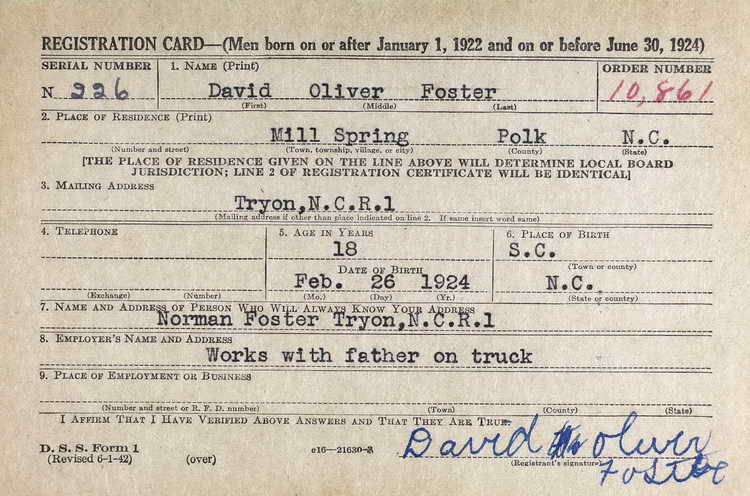 REGISTRATION CARD—(Men born on or after January 1, 1922 and on or before June 30, 1924)
SERIAL NUMBER 1. NAME (Print) ORDER NUMBER
N 226 David Oliver Foster 10,861
(First) (Middle) (Last)
2. PLACE OF RESIDENCE (Print)
Mill Spring Polk N.C.
(Number and street) (Town, township, village, or city) (County) (State)
[THE PLACE OF RESIDENCE GIVEN ON THE LINE ABOVE WILL DETERMINE LOCAL BOARD
JURISDICTION; LINE 2 OF REGISTRATION CERTIFICATE WILL BE IDENTICAL]
3. MAILING ADDRESS
Tryon,N.C.R.1
(Mailing address if other than place indicated on line 2. If same insert word same)
4. TELEPHONE 5. AGE IN YEARS 6. PLACE OF BIRTH
18 S.C.
(Town or county)
DATE OF BIRTH
Feb. 26 1924 N.C.
(Exchange) (Number) (Mo.) (Day) (Yr.) (State or country)
7. NAME AND ADDRESS OF PERSON WHO WILL ALWAYS KNOW YOUR ADDRESS
Norman Foster Tryon,N.C.R.1
8. EMPLOYER'S NAME AND ADDRESS
Works with father on truck
9. PLACE OF EMPLOYMENT OR BUSINESS
(Number and street or R. F. D. number) (Town) (County) (State)
I AFFIRM THAT I HAVE VERIFIED ABOVE ANSWERS AND THAT THEY ARE TRUE.
D. S. S. Form 1
(Revised 6-1-42) (over) c16—21630-2
David Oliver
(Registrant's signature)
Foster